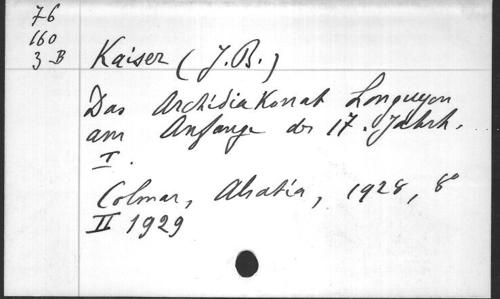 76
160
3 B
Kaiser (J.B.)
Das Archidiakonat Longuyon
am Anfange des 17. Jahrh.
I.
Colmar, Alsatia, 1928, 8°
II 1929